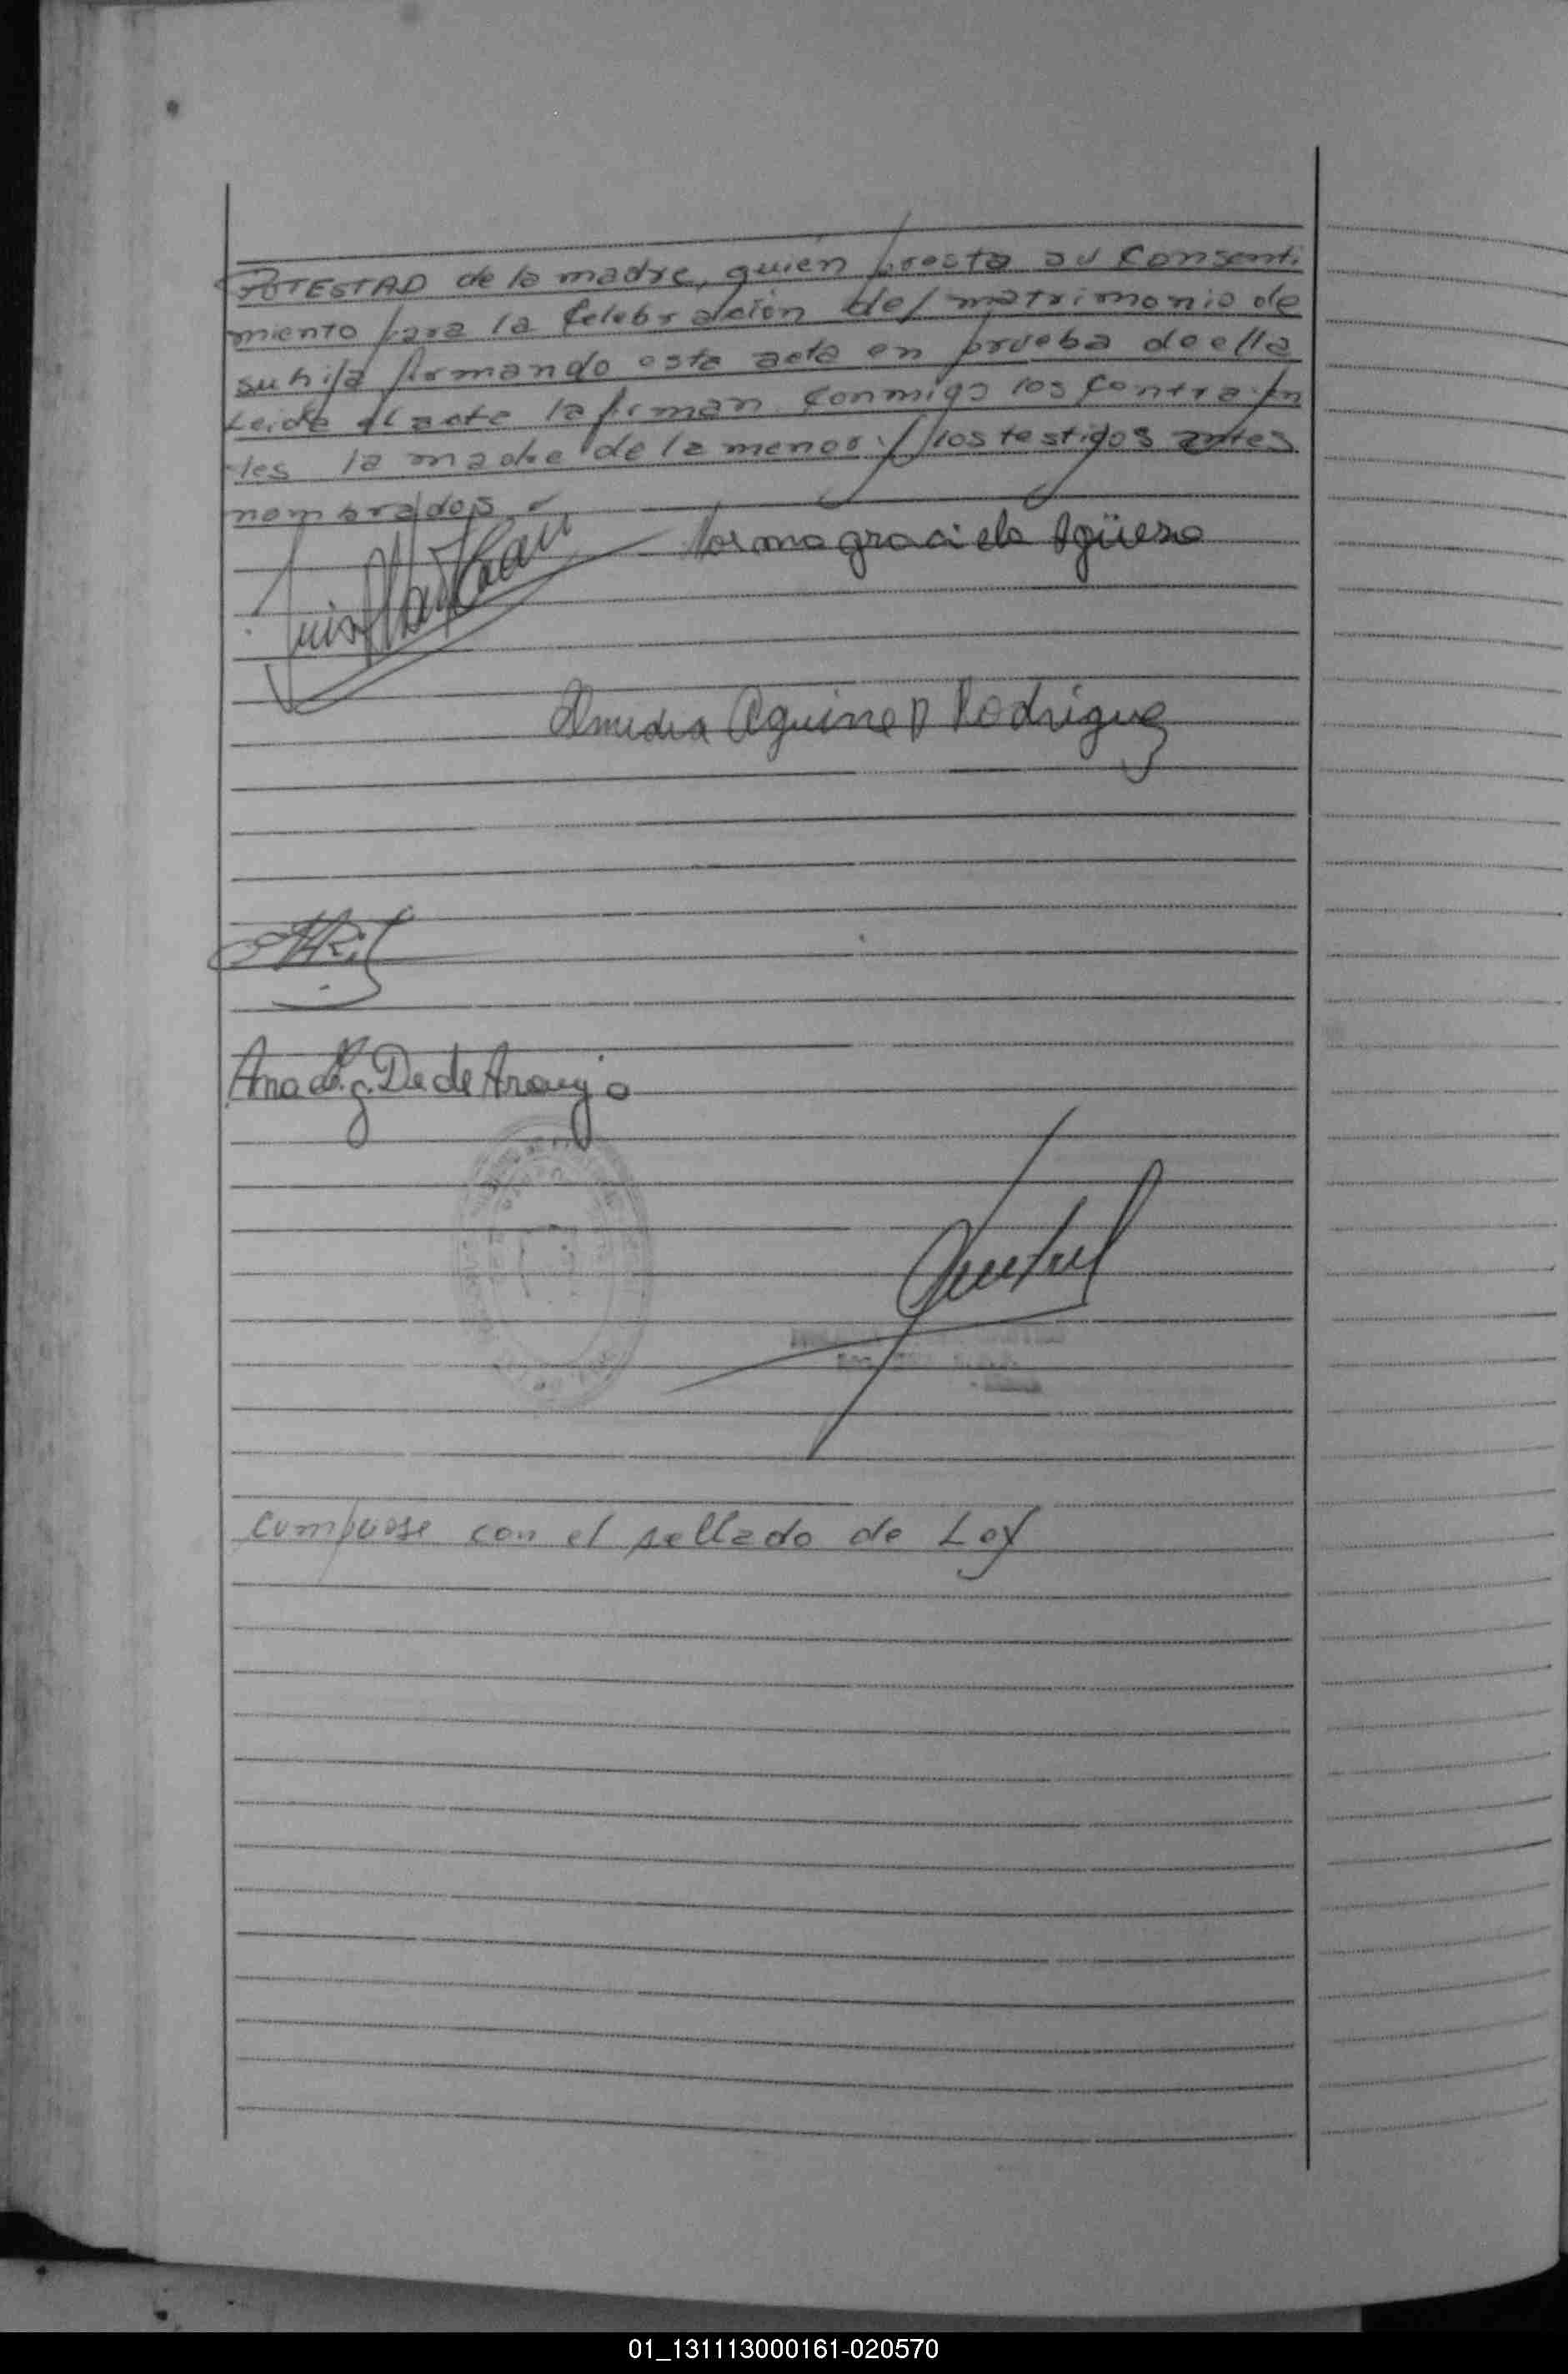 POTESTAD de la madre, quien presta su Consenti
miento para la Celebración del matrimonio de
su hija firmando esta acta en prueba de ella
Leida el acta la firman conmigo los Contrayen
tes la madre de la menor y los testigos antes
nombrados
Luis
Norma graciela Agüero
Rodriguez
Ana de Araujo
cumplase con el sellado de Ley
01_131113000161-020570